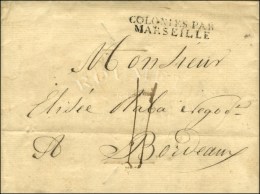 COLONIES PAR
MARSEILLE
Monsieur
Elisée Raba Negot
A Bordeaux